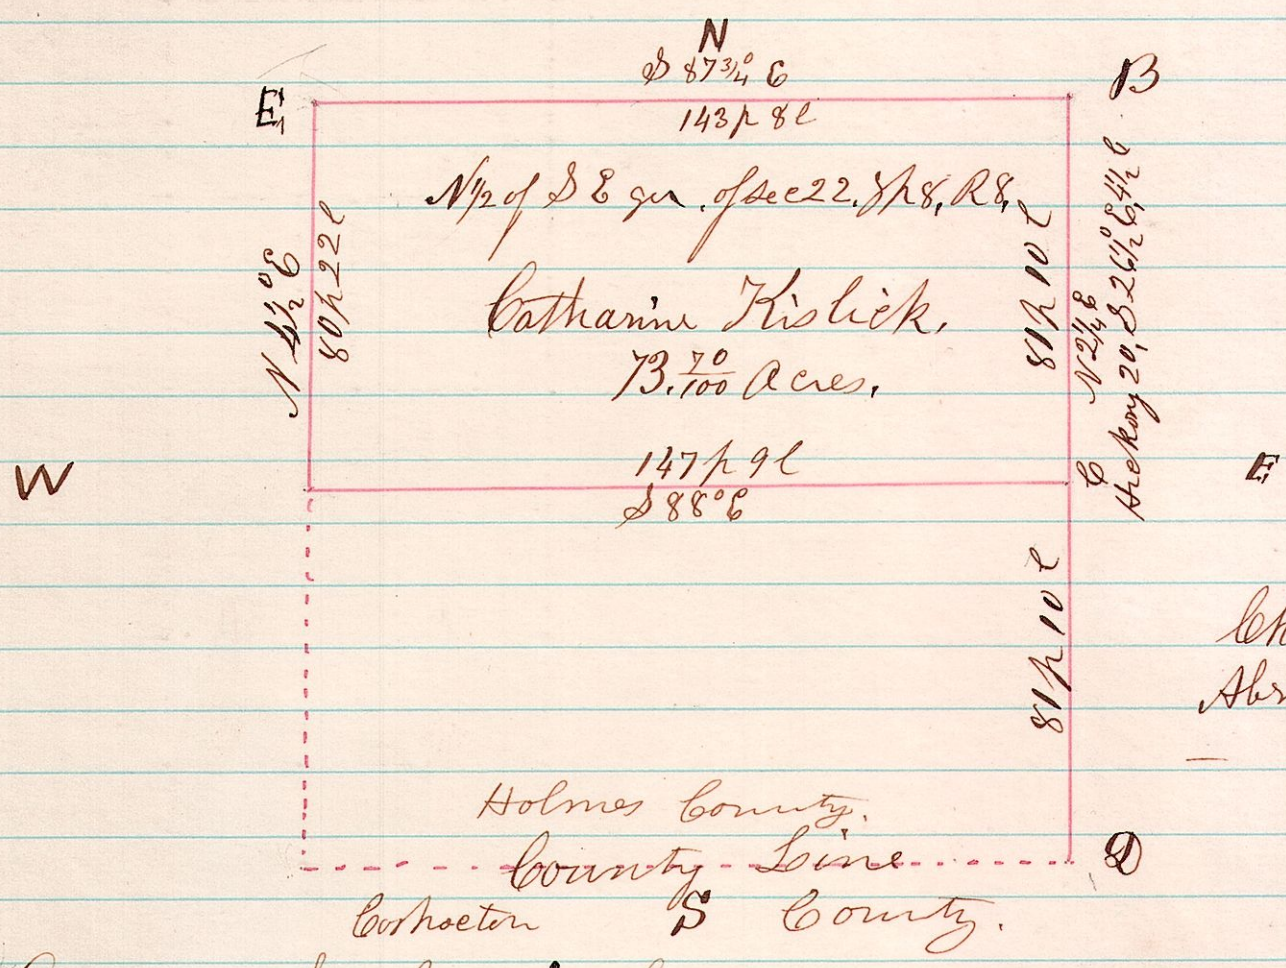 N
S 87 3/4° E
E
B
143 p 8 l
N 1/2 of S E qr. of sec 22. Tp 8, R 8,
N 4 1/2° E
80 p 22 l
Catharine Kislick.
73. 70/100 Acres.
81 p 10 l
N 2 1/4 E
Hickory 20, S 26 1/2° E, 4 1/2 l
C
W
E
147 p 9 l
S 88° E
81 p 10 l
Holmes County.
County Line
D
Coshocton S County.